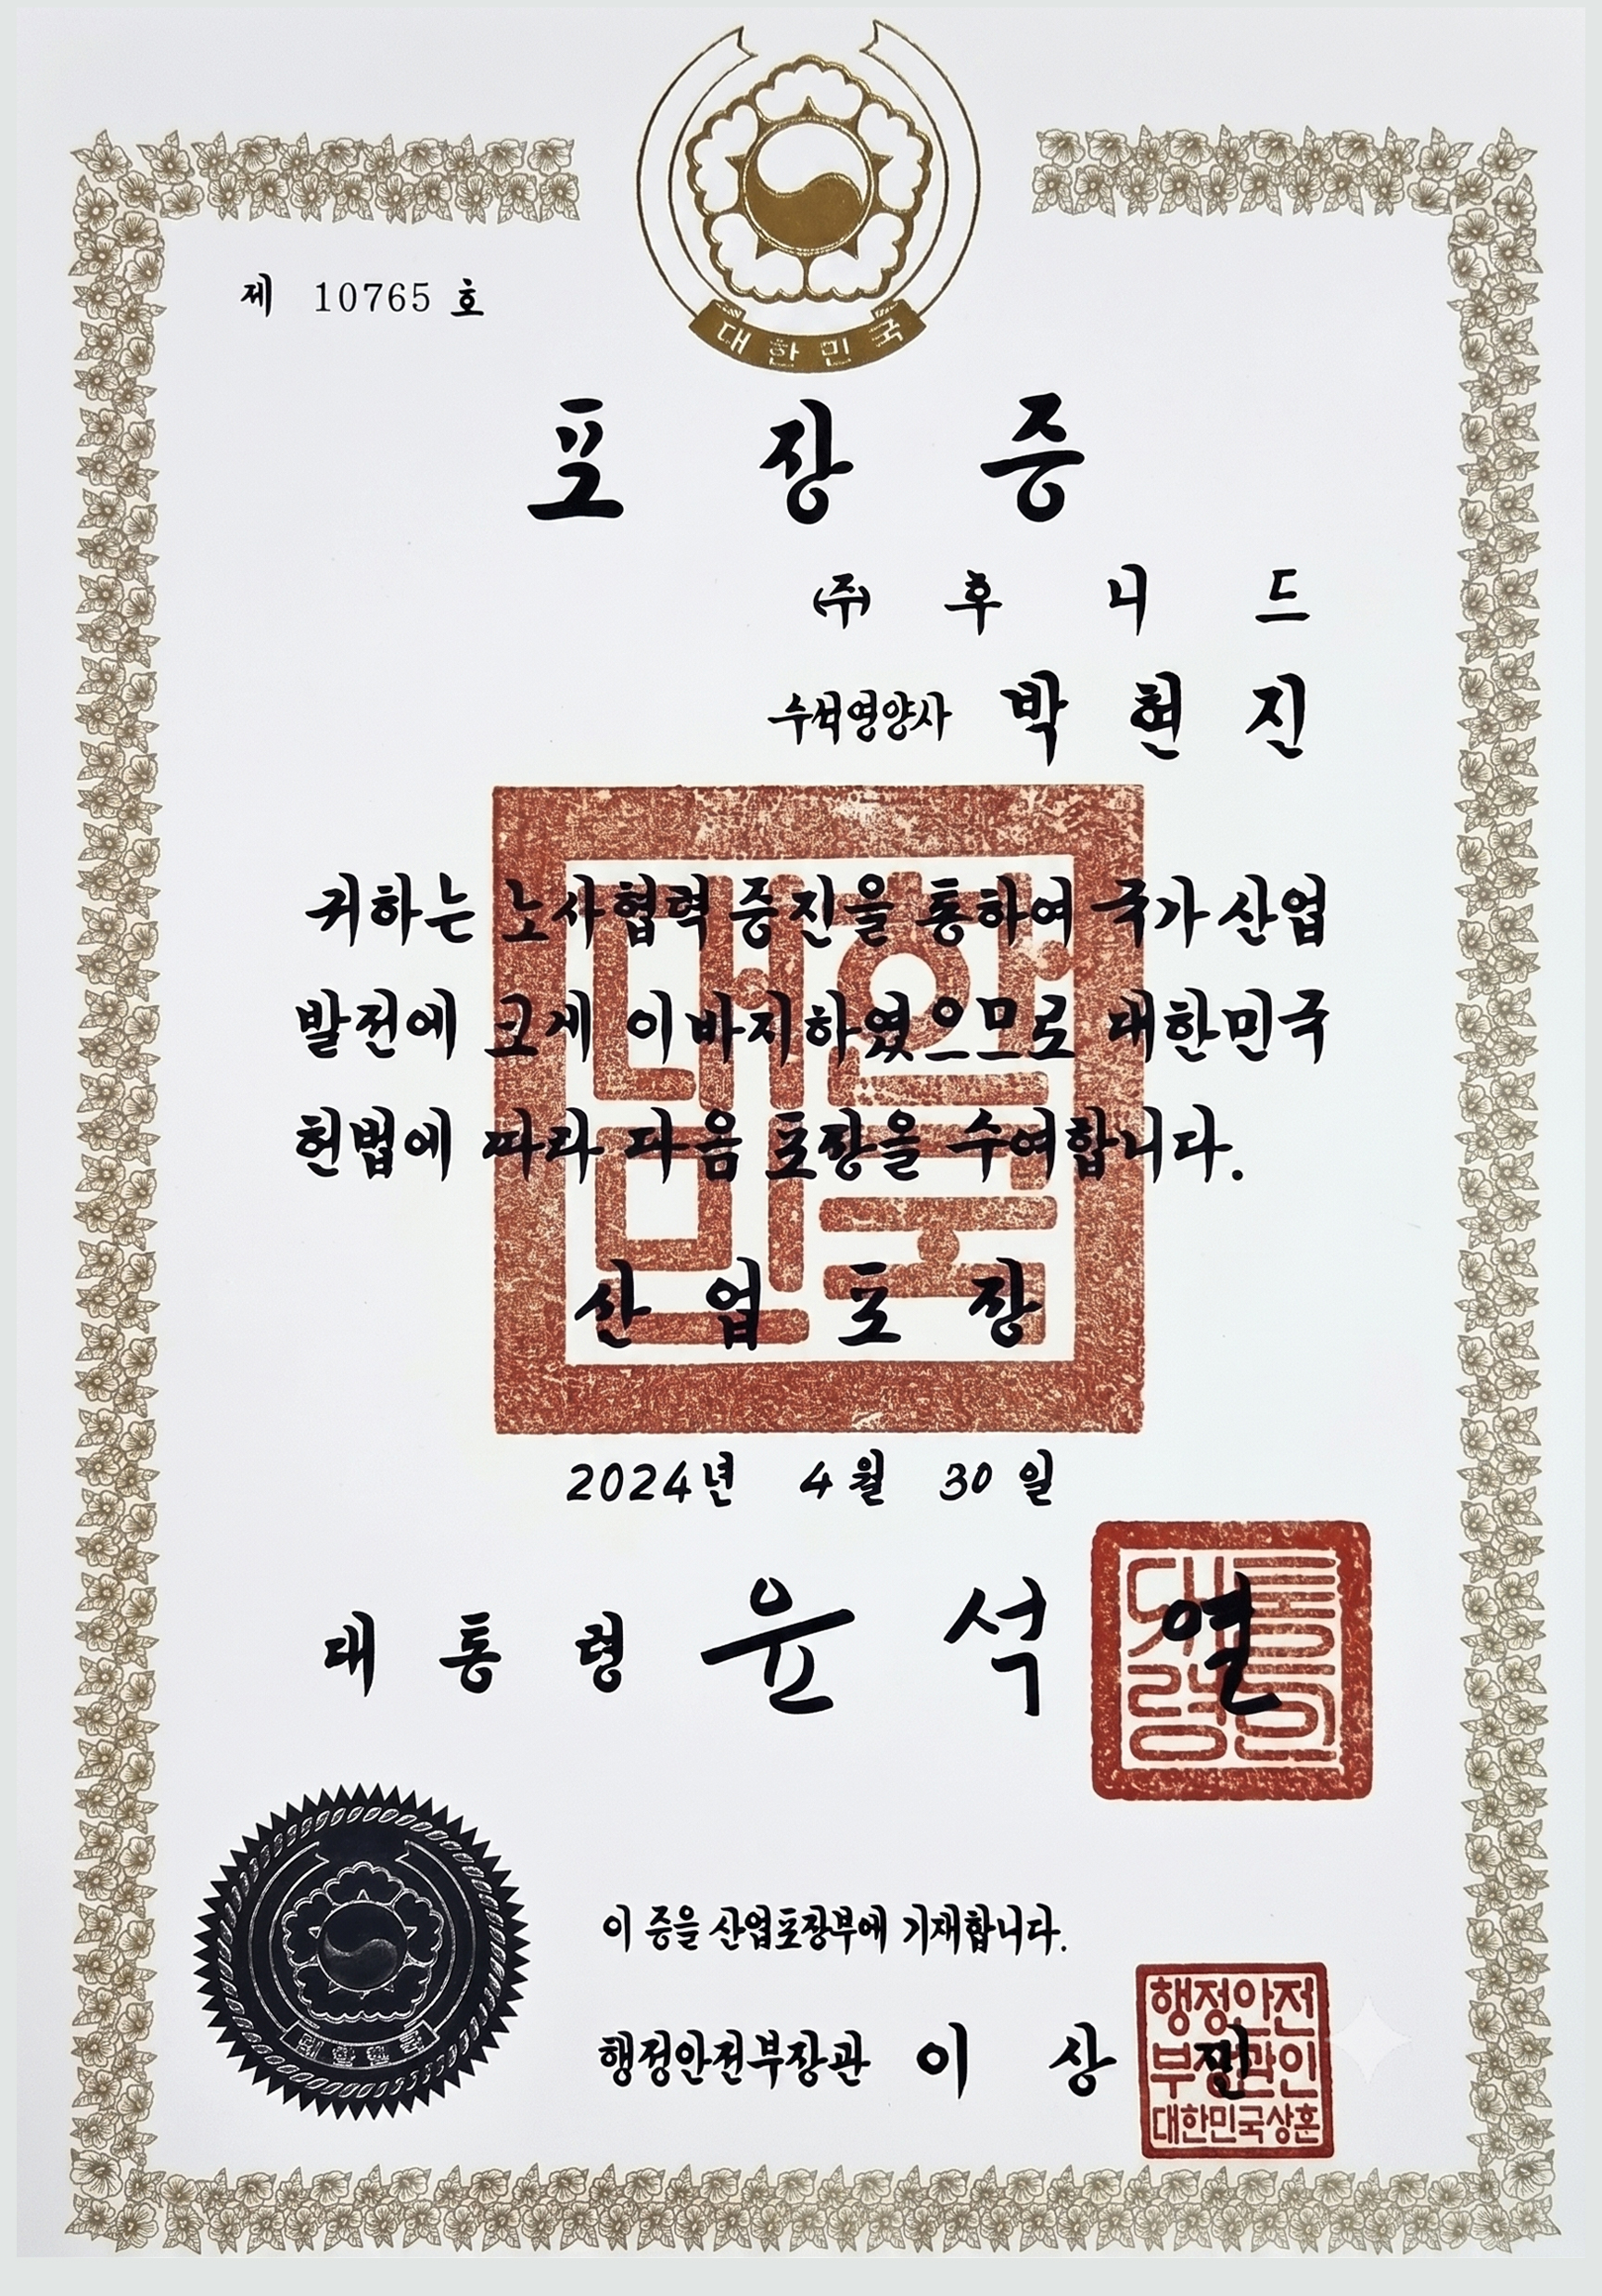 대한민국
제 10765 호
포 장 증
㈜ 후 니 드
수석영양사 박 현 진
귀하는 노사협력 증진을 통하여 국가 산업
발전에 크게 이바지하였으므로 대한민국
헌법에 따라 다음 포장을 수여합니다.
대한
민국
산 업 포 장
2024년 4월 30일
대 통 령 윤 석 열
이 증을 산업포장부에 기재합니다.
행정안전부장관 이 상 민
행정안전
부장관인
대한민국상훈
대한민국